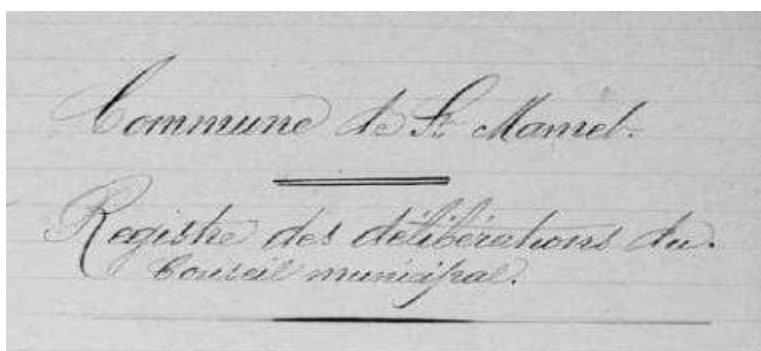 Commune de St. Mamet.
Registre des délibérations du
Conseil municipal.